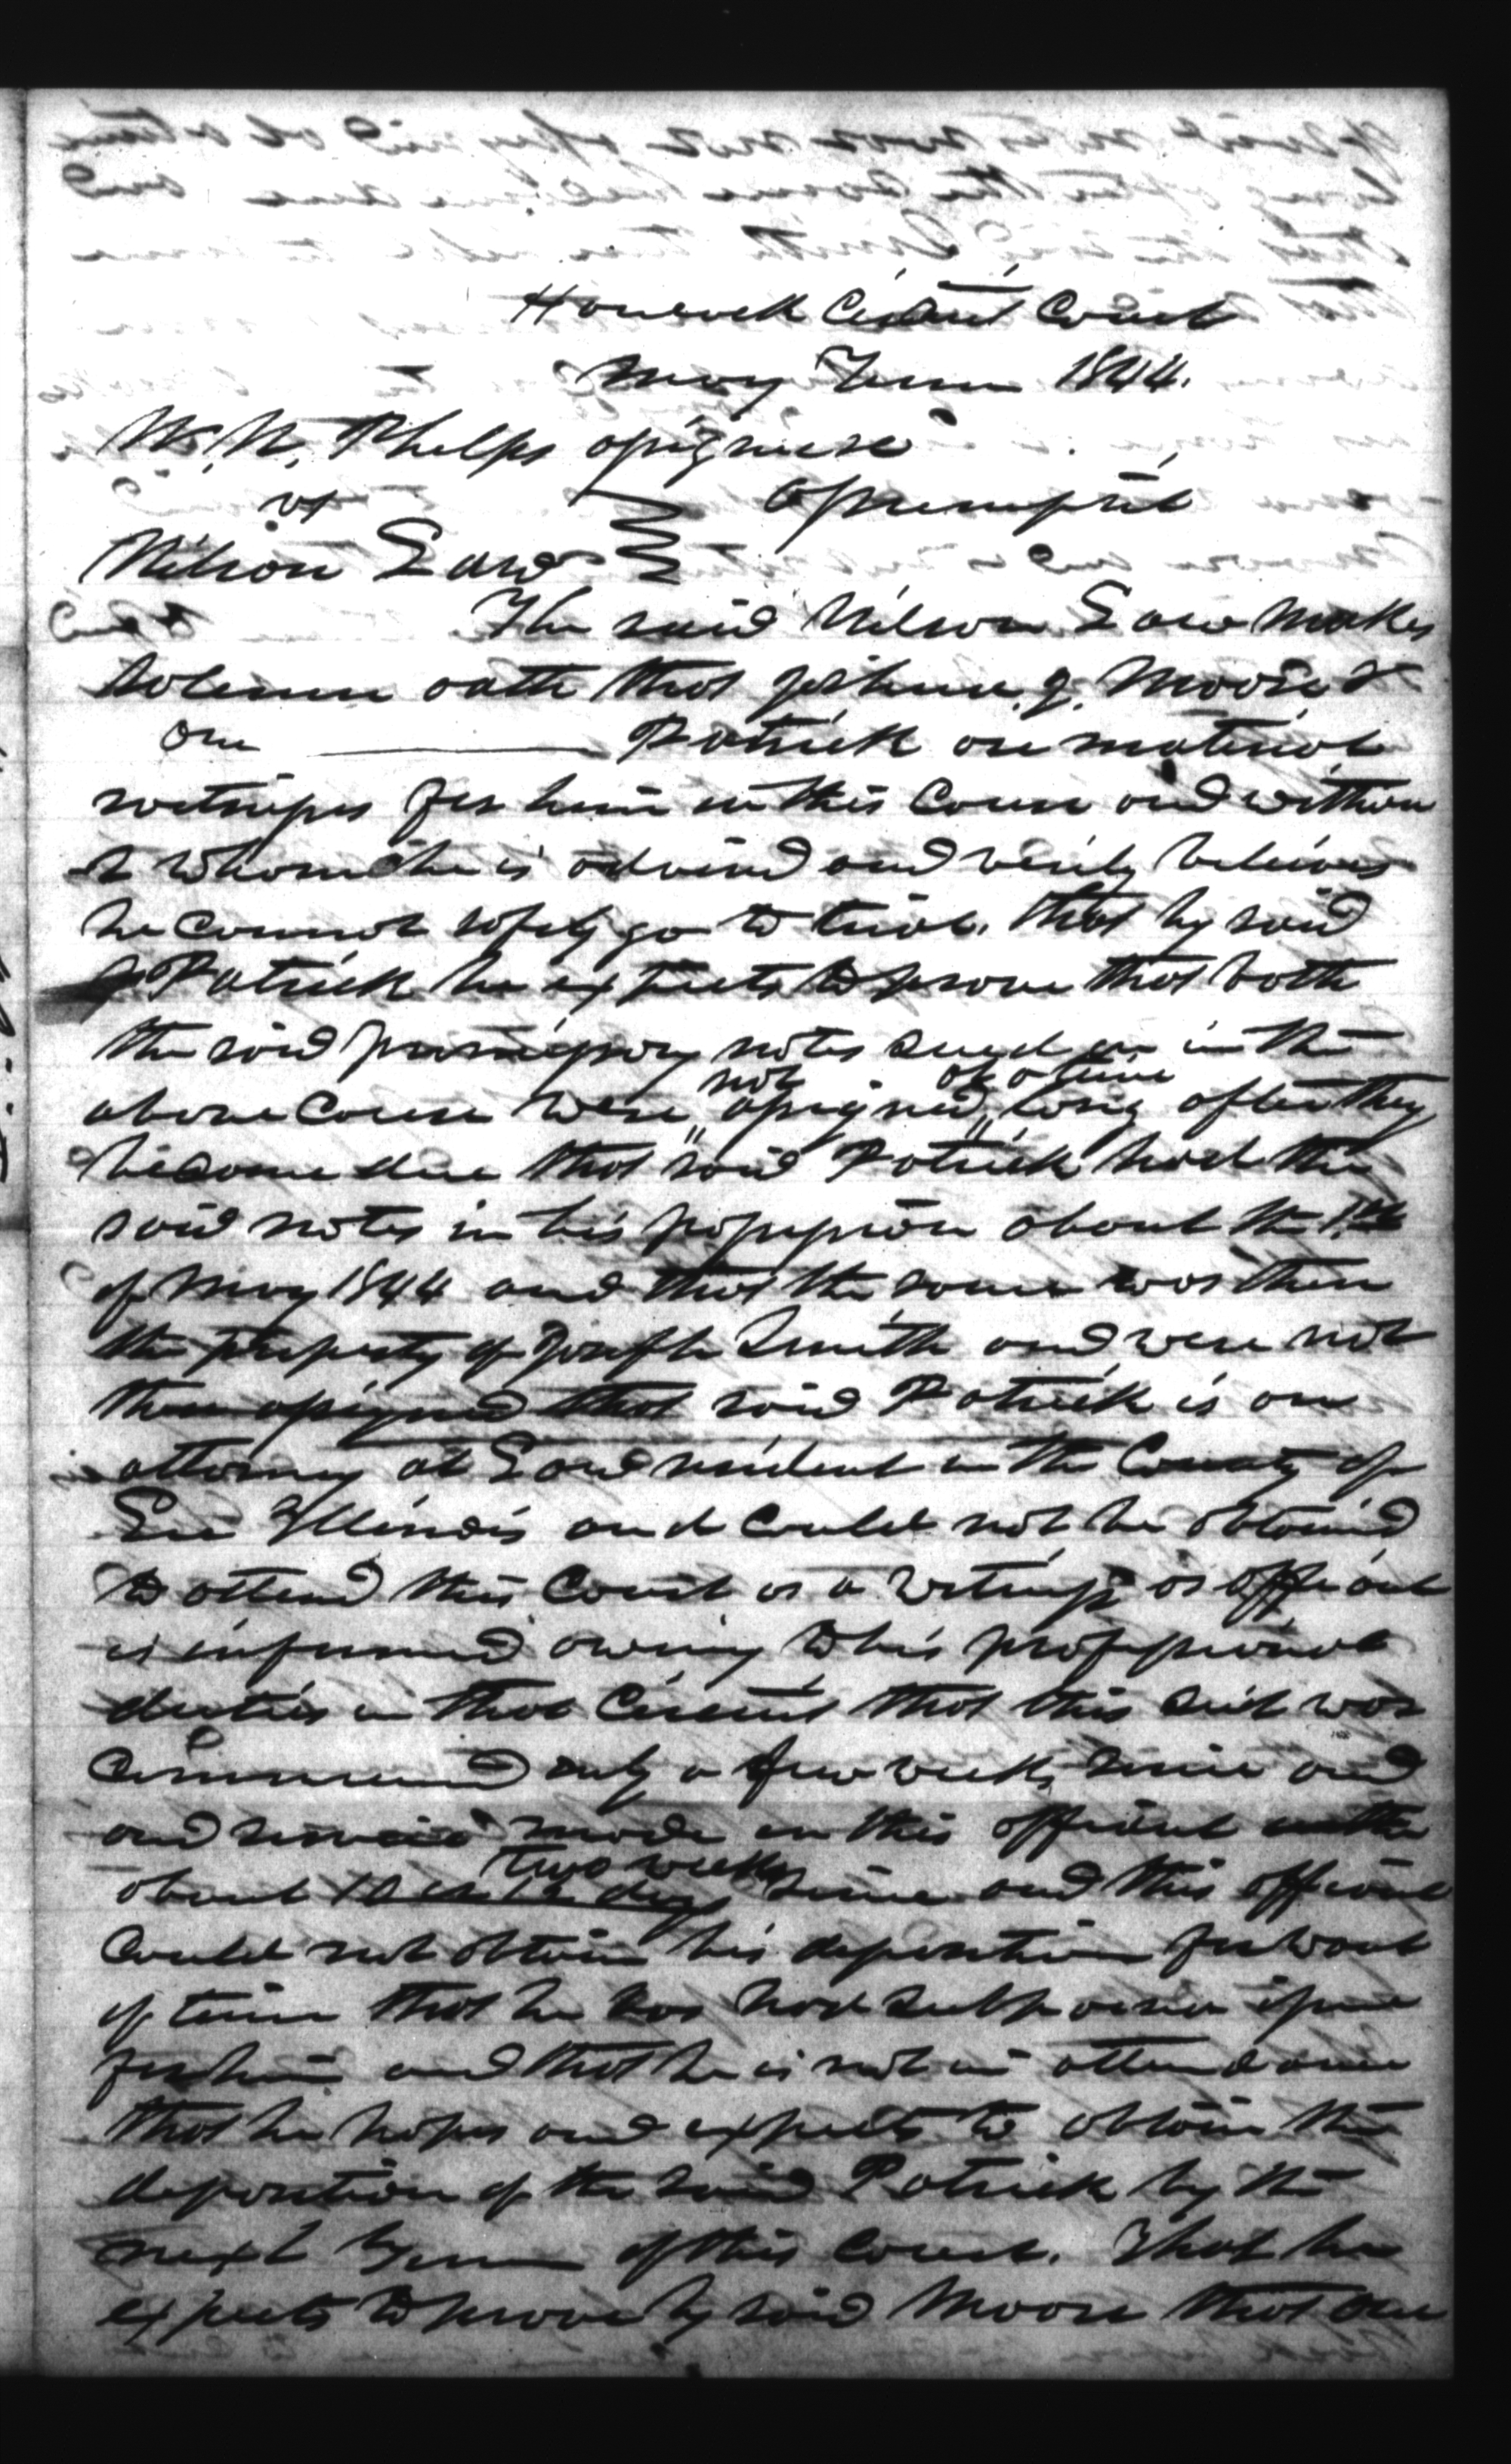 Hancock Circuit Court
May Term 1844.
W. W. Phelps assignee
vs
Assumpsit
Wilson Law
The said Wilson Law makes
Solemn oath that Joshua J. Moore &
one ———— Patrick are material
witnesses for him in this Cause and without
whom he is advised and verily believes
he cannot safely go to trial. That by said
Patrick he expects to prove that both
the said promissory notes sued on in the
above Cause were not assigned till a time long after they
become due that said Patrick had the
said notes in his possession about the 1st
of May 1844 and that the same was then
the property of Joseph Smith and were not
then assigned that said Patrick is an
attorney at Law resident in the County of
Lee Illinois and could not be obtained
to attend this Court as a witness as affiant
is informed owing to his professional
duties in that Circuit that this suit was
Commenced only a few weeks since and
and service made on this affiant
about 10 or 12 days two weeks since and this affiant
Could not obtain his deposition for want
of time that he has had subpoena issued
for him and that he is not in attendance
that he hopes and expects to obtain the
deposition of the said Patrick by the
next Term of this Court. That he
expects to prove by said Moore that one